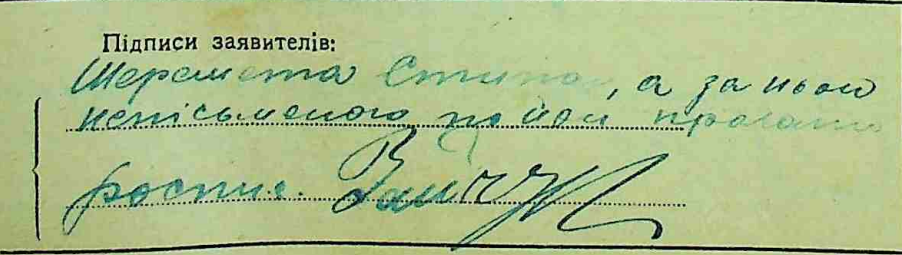 Підписи заявителів:
Шеремета Степан, а за нього
неписьменого по його проханню
роспис. Вайчук